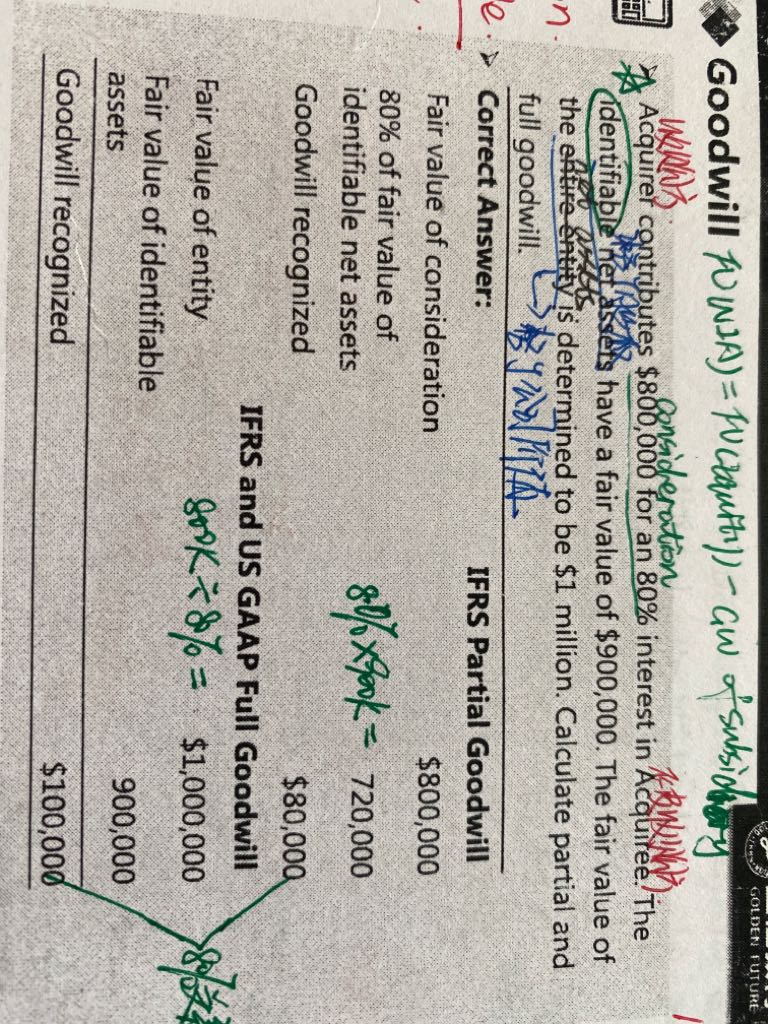 GOLDEN FUTURE
Goodwill FV(NIA) = FV(equity) - GW of subsidiary
收购方 consideration 被收购方
Acquirer contributes $800,000 for an 80% interest in Acquiree. The
identifiable net assets have a fair value of $900,000. The fair value of
net assets
the entire entity is determined to be $1 million. Calculate partial and
full goodwill.
Correct Answer:
IFRS Partial Goodwill
Fair value of consideration $800,000
80% of fair value of
identifiable net assets 80% × 900k = 720,000
Goodwill recognized $80,000
IFRS and US GAAP Full Goodwill
Fair value of entity 800k ÷ 80% = $1,000,000
Fair value of identifiable
assets 900,000
Goodwill recognized $100,000
80%
n.
e.